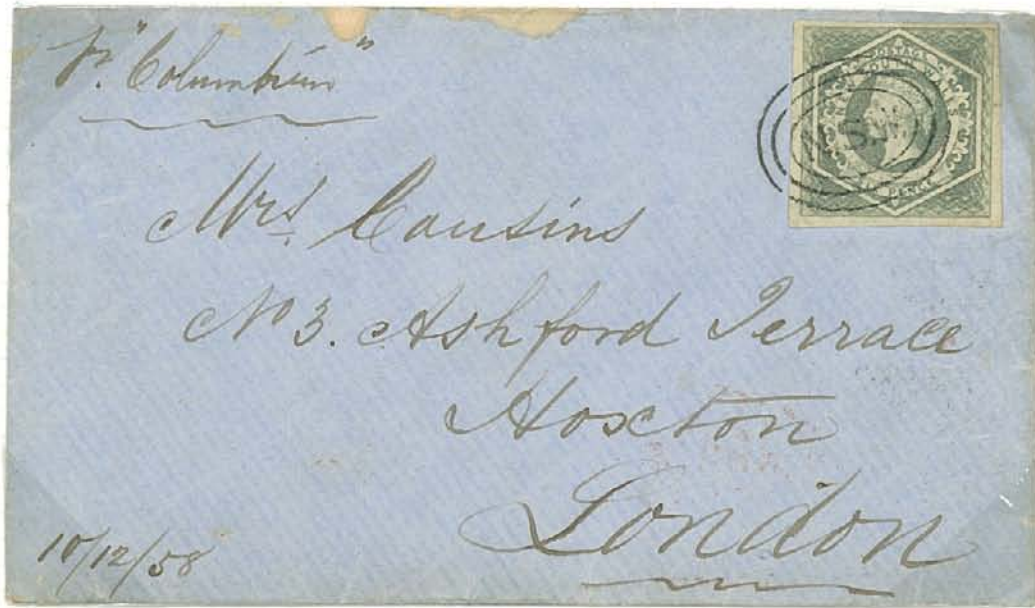 pr. "Columbian"
POSTAGE
SOUTH WALES
N.S.W
PENCE
Mrs. Cousins
No 3. Ashford Terrace
Hoxton
London
10/12/58